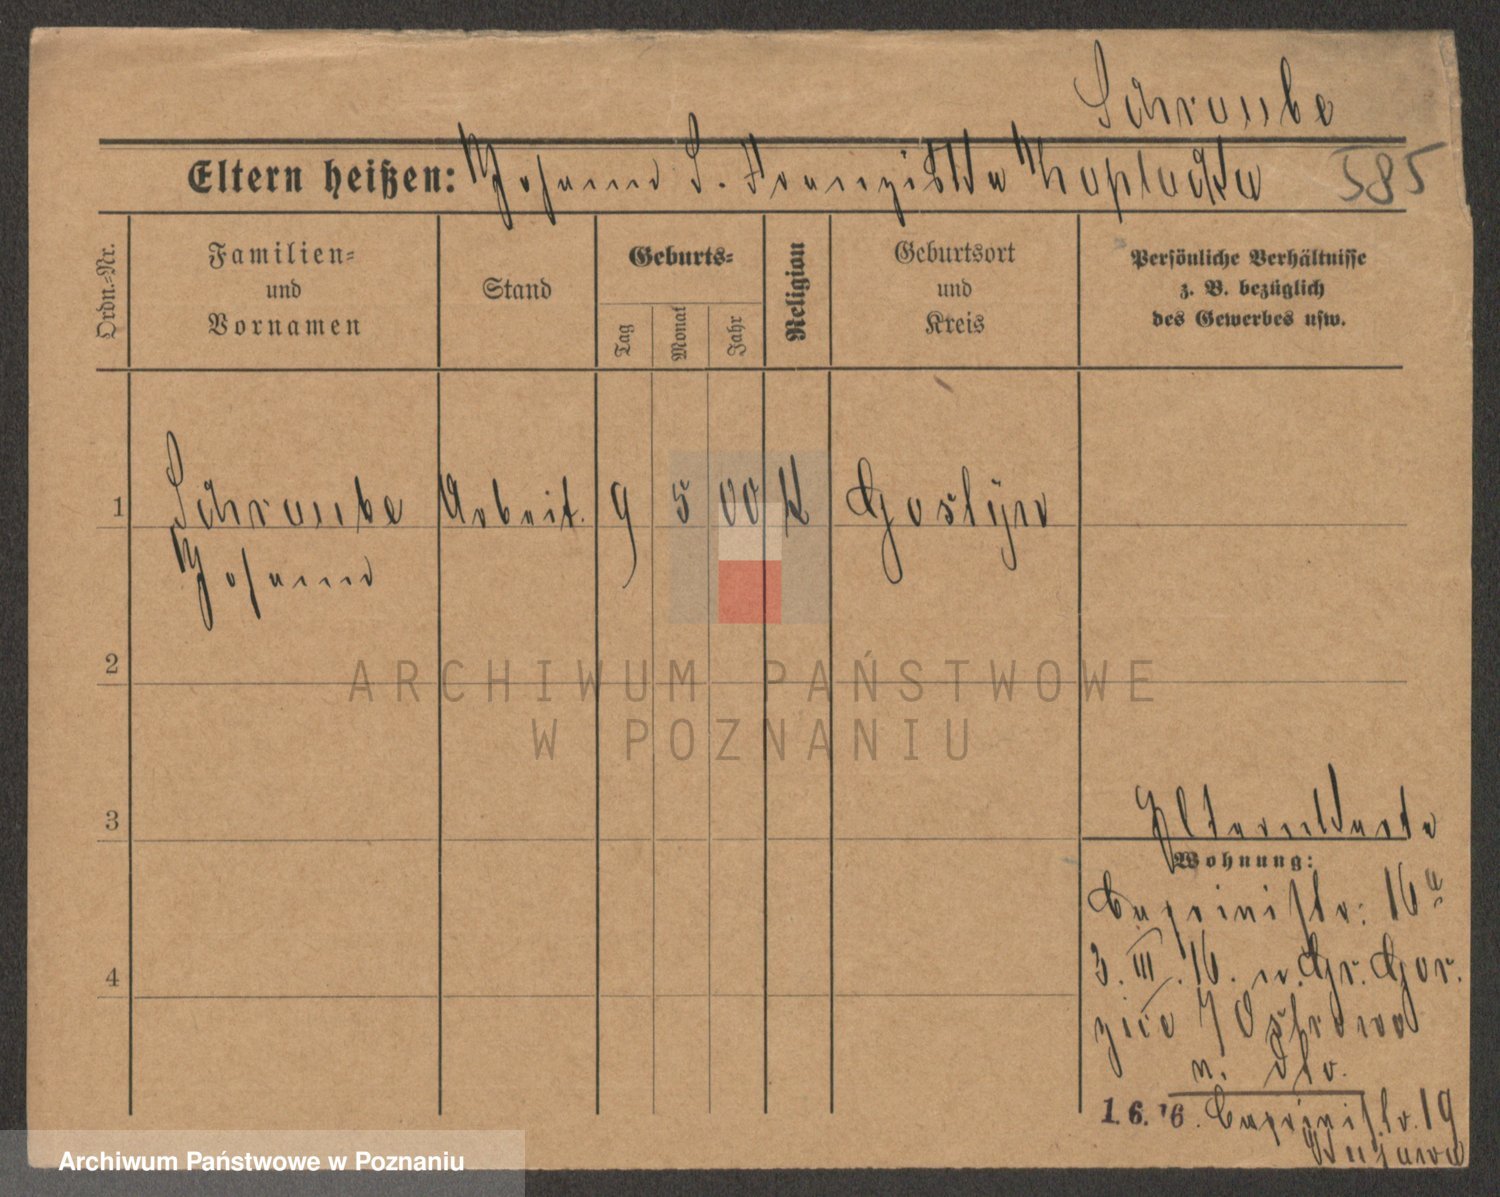 Schraube
Eltern heißen: Johann S. Franziska 585
Ordn.=Nr.
Familien=
und
Vornamen
Stand
Geburts=
Tag
Monat
Jahr
Religion
Geburtsort
und
Kreis
Persönliche Verhältnisse
z. B. bezüglich
des Gewerbes usw.
1 Schraube Arbeit. 9 5 00 K Gostyn
Johann
2
ARCHIWUM PAŃSTWOWE
W POZNANIU
3
Elternkarte
Wohnung:
Caprivistr: 16
4
3. III. 16. n. Gr. Gor.
zice / Ostrowo
n. dto.
1.6.16. Caprivistr. 19
Archiwum Państwowe w Poznaniu